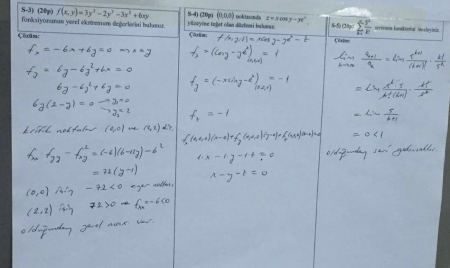 S-3) (20p) f(x,y)=3y²-2y³-3x²+6xy
fonksiyonunun yerel ekstremum değerlerini bulunuz.
Çözüm:
fx = -6x+6y=0 x=y
fy = 6y-6y²+6x=0
6y-6y²+6y=0
6y(2-y)=0 y₁=0
y₂=2
kritik noktalar (0,0) ve (2,2) dir.
fxx fyy - fxy² = (-6)(6-12y)-6²
= 72(y-1)
(0,0) için -72<0 eyer noktası
(2,2) için 72>0 ve fxx=-6<0
olduğundan yerel max var.
S-4) (20p) (0,0,0) noktasında z = x cos y - ye^x
yüzeyine teğet olan düzlemi bulunuz.
Çözüm: f(x,y,z) = xcosy-ye^x-z
fx = (cosy-ye^x) = 1
(0,0,0)
fy = (-xsiny-e^x) = -1
(0,0,0)
fz = -1
fx(0,0,0)(x-0)+fy(0,0,0)(y-0)+fz(0,0,0)(z-0)=0
1·x-1·y-1·z=0
x-y-z=0
S-5) (20p) serisinin karakterini inceleyiniz.
Çözüm:
= 0<1
olduğundan seri yakınsaktır.